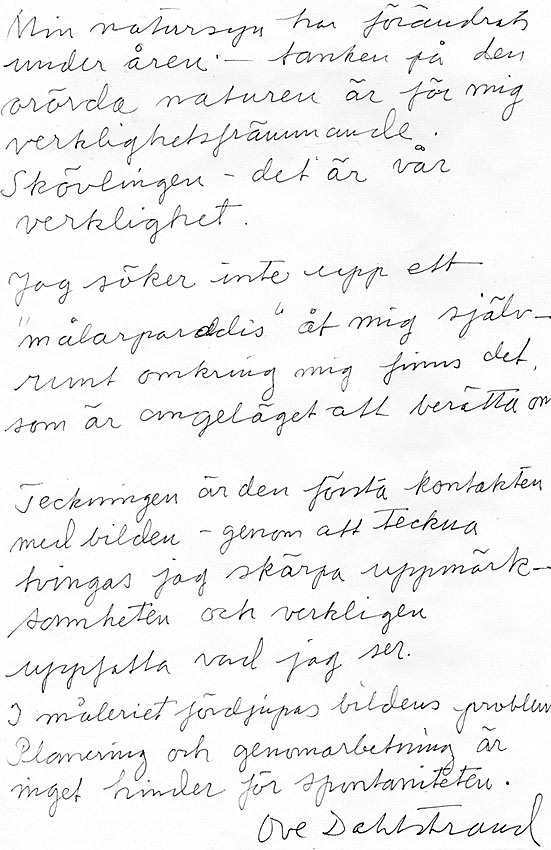 Min natursyn har förändrats
under åren – tanken på den
orörda naturen är för mig
verklighetsfrämmande.
Skövlingen – det är vår
verklighet.
Jag söker inte upp ett
"målarparadis" åt mig själv –
runt omkring mig finns det,
som är angeläget att berätta om
Teckningen är den första kontakten
med bilden – genom att teckna
tvingas jag skärpa uppmärk-
samheten och verkligen
uppfatta vad jag ser.
I måleriet fördjupas bildens problem
Planering och genomarbetning är
inget hinder för spontaniteten.
Ove Dahlstrand